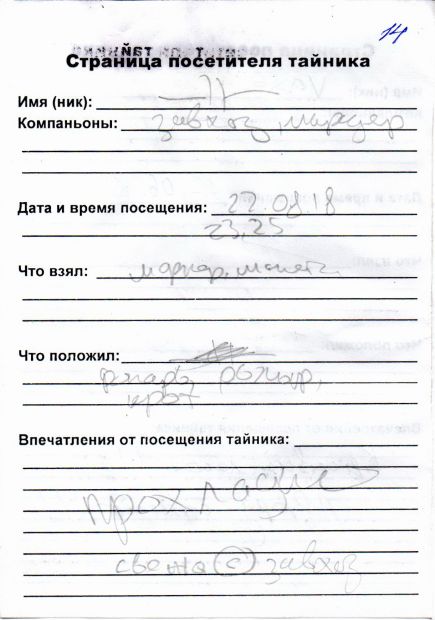 14
Страница посетителя тайника
Имя (ник):
Компаньоны: завхоз, мародер
Дата и время посещения: 22.08.18
23,25
Что взял: маркер, монета
Что положил:
фонарь,
Впечатления от посещения тайника:
прохладно
свежо (с) завхоз